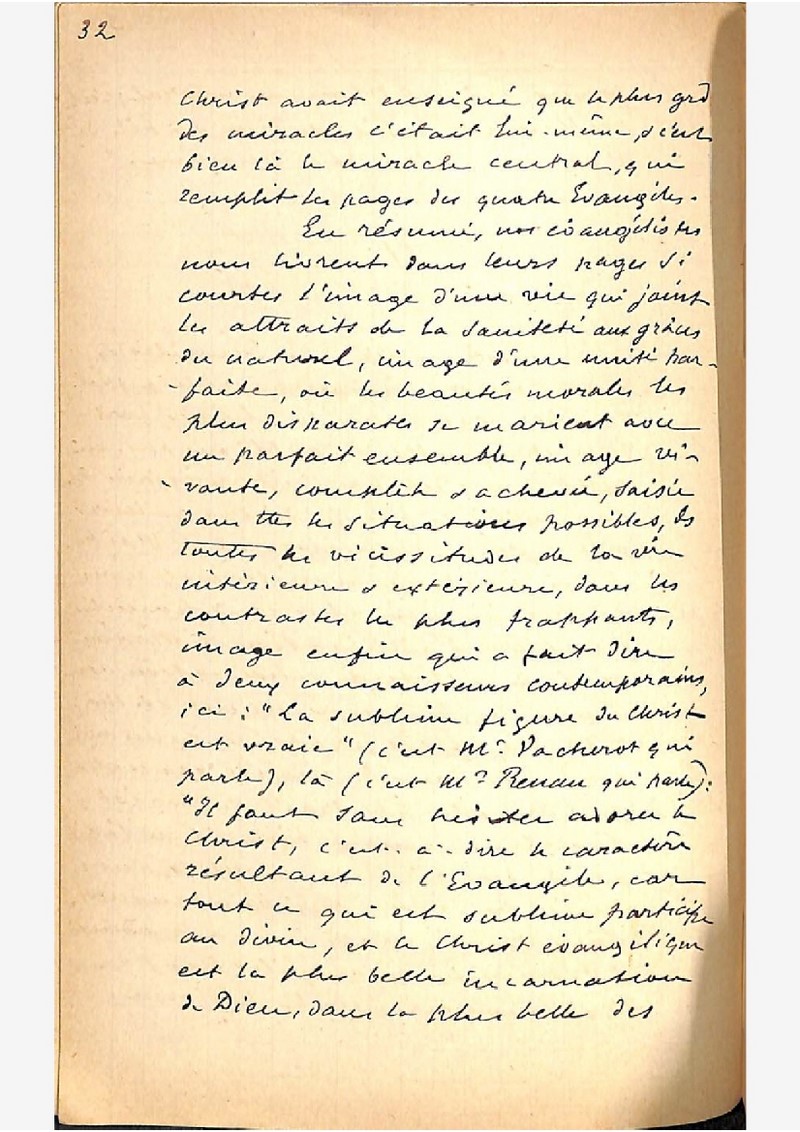 32
Christ avait enseigné que le plus grd
des miracles c'était lui-même, & c'est
bien là le miracle central, qui
remplit les pages des quatre Evangiles.
En résumé, nos évangélistes
nous livrent dans leurs pages si
courtes l'image d'une vie qui joint
les attraits de la sainteté aux grâces
du naturel, image d'une unité par-
-faite, où les beautés morales les
plus disparates se marient avec
un parfait ensemble, image vi-
-vante, complète & achevée, saisie
dans ttes les situations possibles, ds
toutes les vicissitudes de la vie
intérieure & extérieure, dans les
contrastes les plus frappants,
image enfin qui a fait dire
à deux connaisseurs contemporains,
ici : "La sublime figure du Christ
est vraie" (c'est Mr. Vacherot qui
parle), là (c'est Mr. Renan qui parle) :
"Il faut sans hésiter adorer le
Christ, c'est-à-dire le caractère
résultant de l'Evangile, car
tout ce qui est sublime participe
au divin, et le Christ évangélique
est la plus belle incarnation
de Dieu, dans la plus belle des